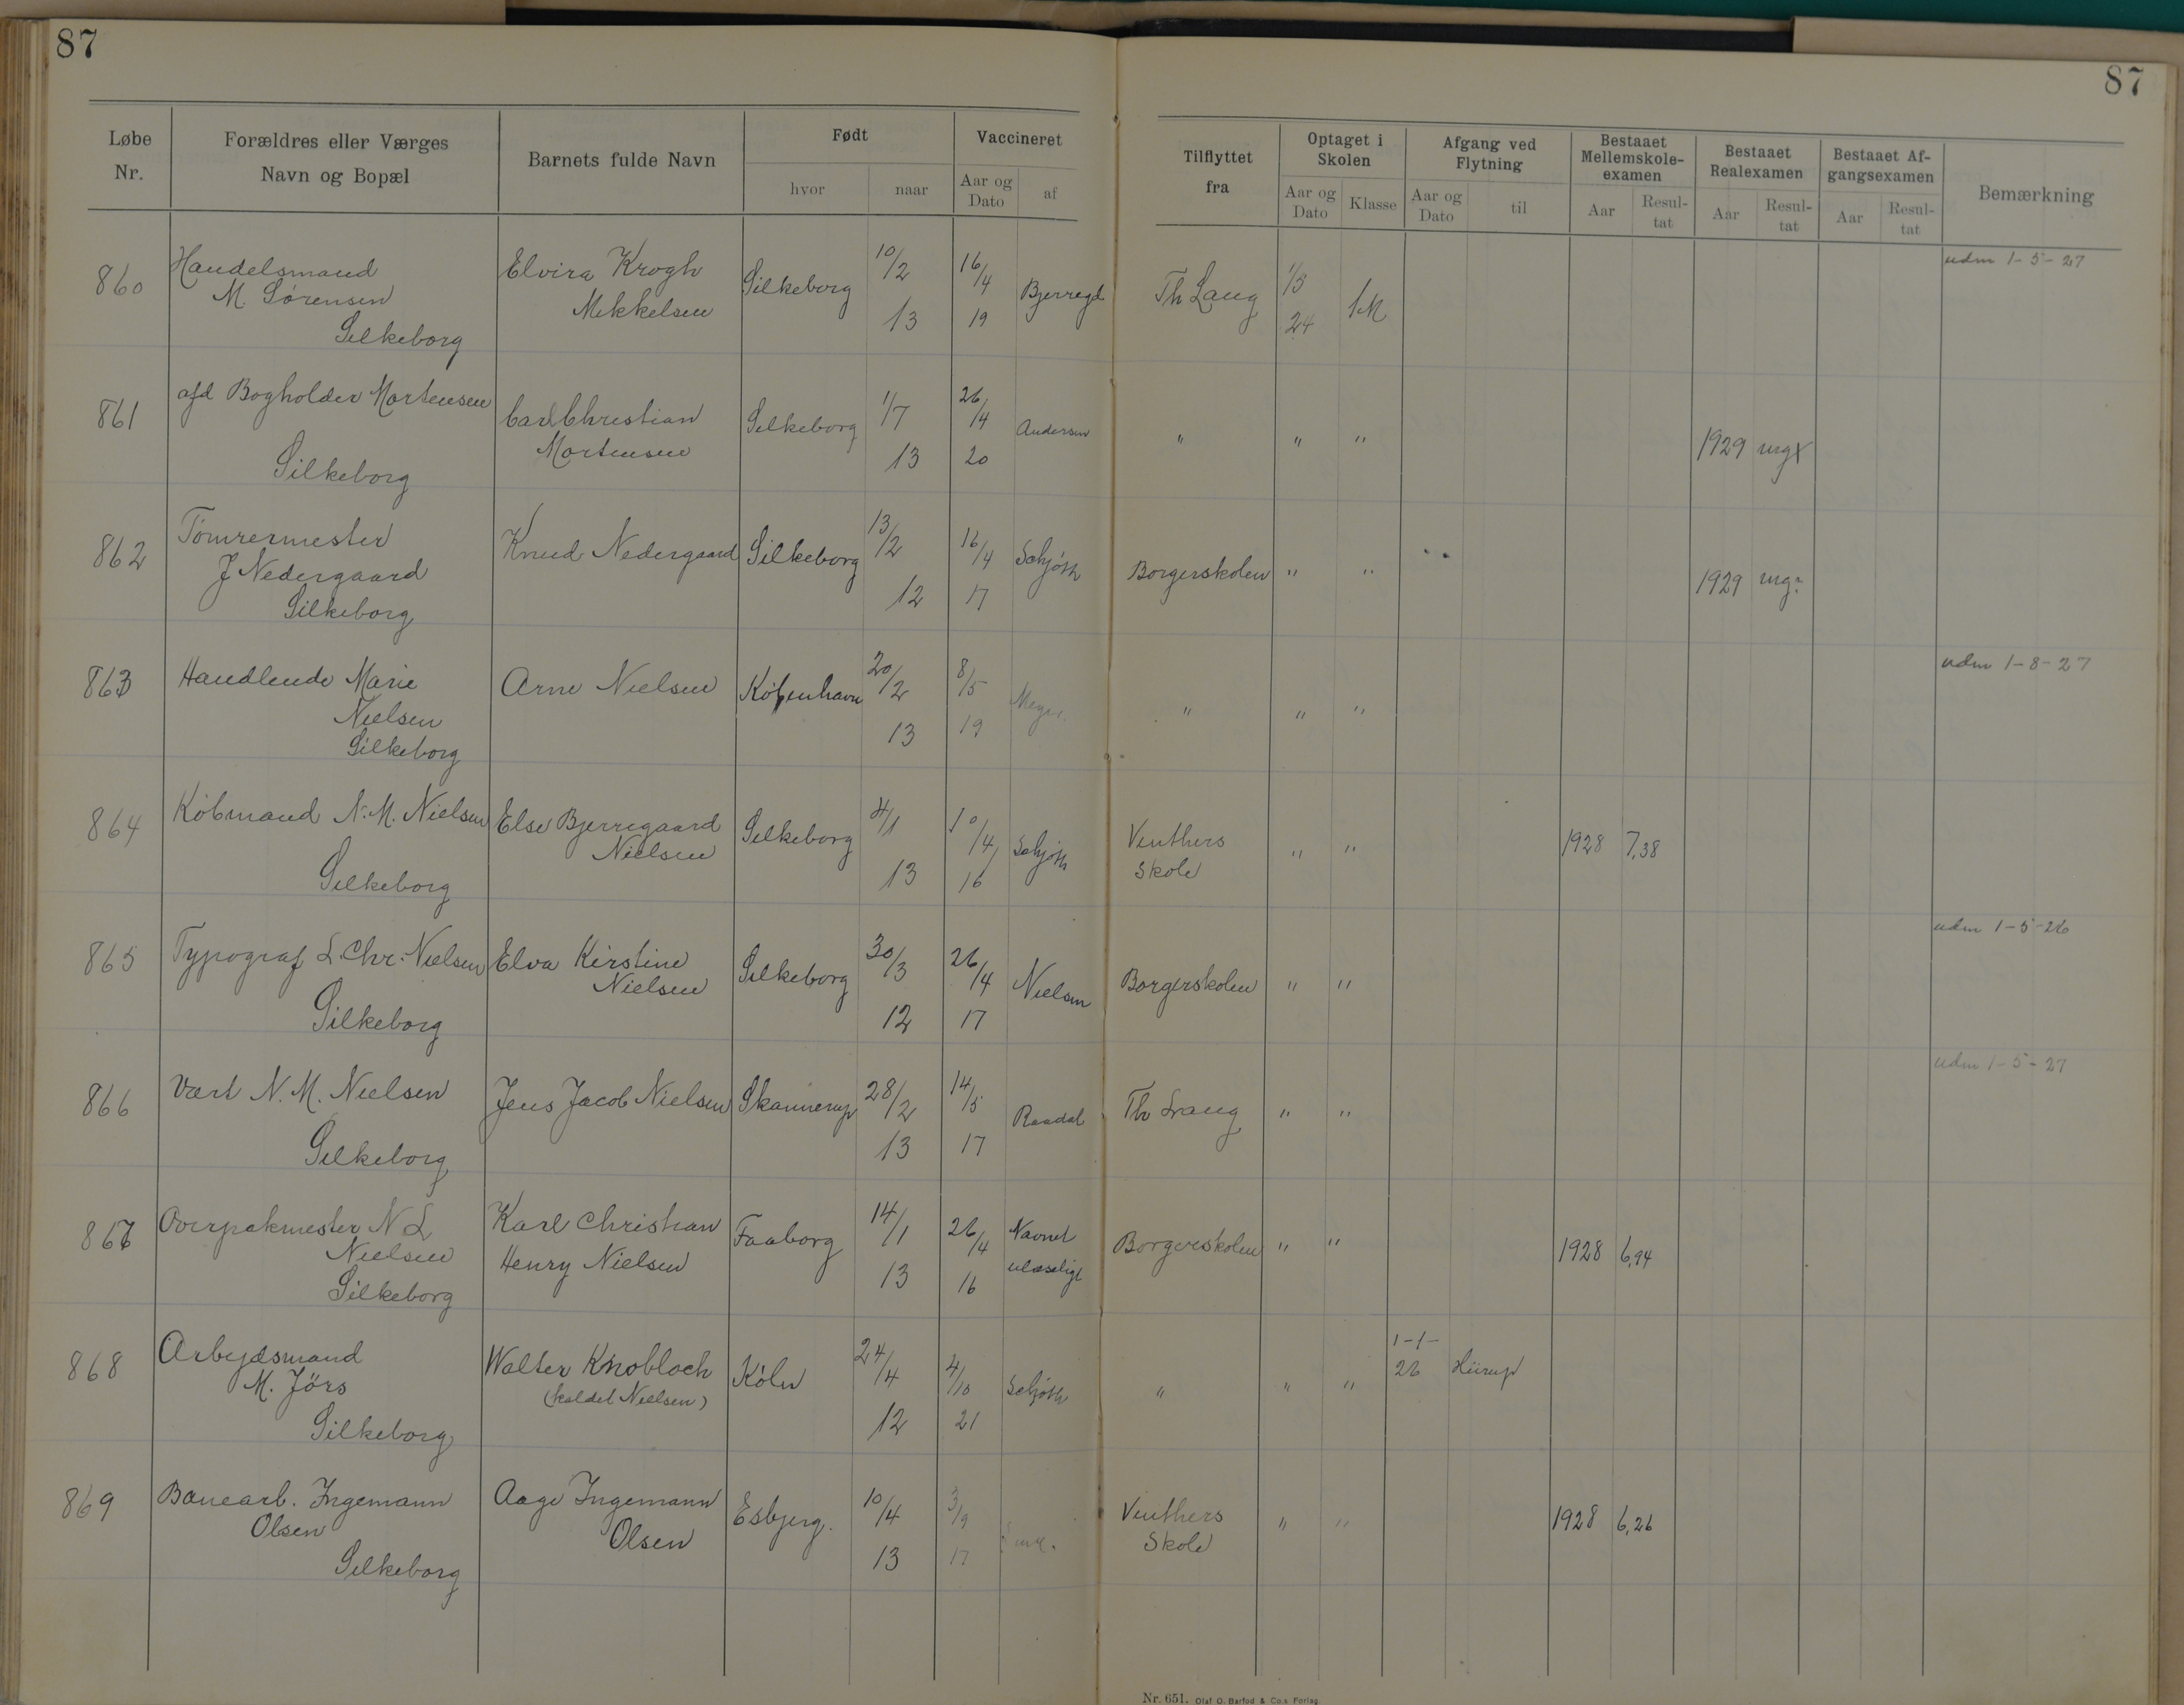 87
87
Løbe Nr.
Forældres eller Værges Navn og Bopæl
Barnets fulde Navn
Født
hvor
naar
Vaccineret
Aar og Dato
af
Tilflyttet fra
Optaget i Skolen
Aar og Dato
Klasse
Afgang ved Flytning
Aar og Dato
til
Bestaaet Mellemskole-examen
Aar
Resul-tat
Bestaaet Realexamen
Aar
Resul-tat
Bestaaet Af-gangsexamen
Aar
Resul-tat
Bemærkning
860 Handelsmand Elvira Krogh Silkeborg 10/2 16/4 Bjerregd Th Lang 1/5 1M udm 1-5-27
M. Sørensen Mikkelsen 13 19 24
Silkeborg
861 afd Bogholder Mortensen Carl Christian Silkeborg 1/7 26/4 Andersen " " " 1929 mgx
Mortensen 13 20
Silkeborg
862 Tømrermester Knud Nedergaard Silkeborg 13/2 16/4 Schjøth Borgerskolen " " 1929 mg÷
J Nedergaard 12 17
Silkeborg
863 Handlende Marie Arne Nielsen København 20/2 8/5 " " " udm 1-8-27
Nielsen 13 19
Silkeborg
864 Købmand N. M. Nielsen Else Bjerregaard Silkeborg 4/1 10/4 Schjøth Venthers " " 1928 7,38
Nielsen 13 16 Skole
Silkeborg
865 Typograf L. Chr. Nielsen Elva Kirstine Silkeborg 30/3 26/4 Nielsen Borgerskolen " " udm 1-5-26
Nielsen 12 17
Silkeborg
866 Vært N. M. Nielsen Jens Jacob Nielsen Skannerup 28/2 14/5 Raadal Th Lang " " udm 1-5-27
13 17
Silkeborg
867 Overpakmester N L Karl Christian Faaborg 14/1 26/4 Navnet Borgerskolen " " 1928 6,94
Nielsen Henry Nielsen 13 16 ulæseligt
Silkeborg
868 Arbejdsmand Walter Knobloch Köln 24/4 4/10 Schjøth " " " 1-1-26
M. Jörs (kaldet Nielsen) 12 21
Silkeborg
869 Banearb. Ingemann Aage Ingemann Esbjerg. 10/4 3/9 Venthers " " 1928 6,26
Olsen Olsen 13 17 Skole
Silkeborg
Nr. 651. Olaf O. Barfod & Co.s Forlag.